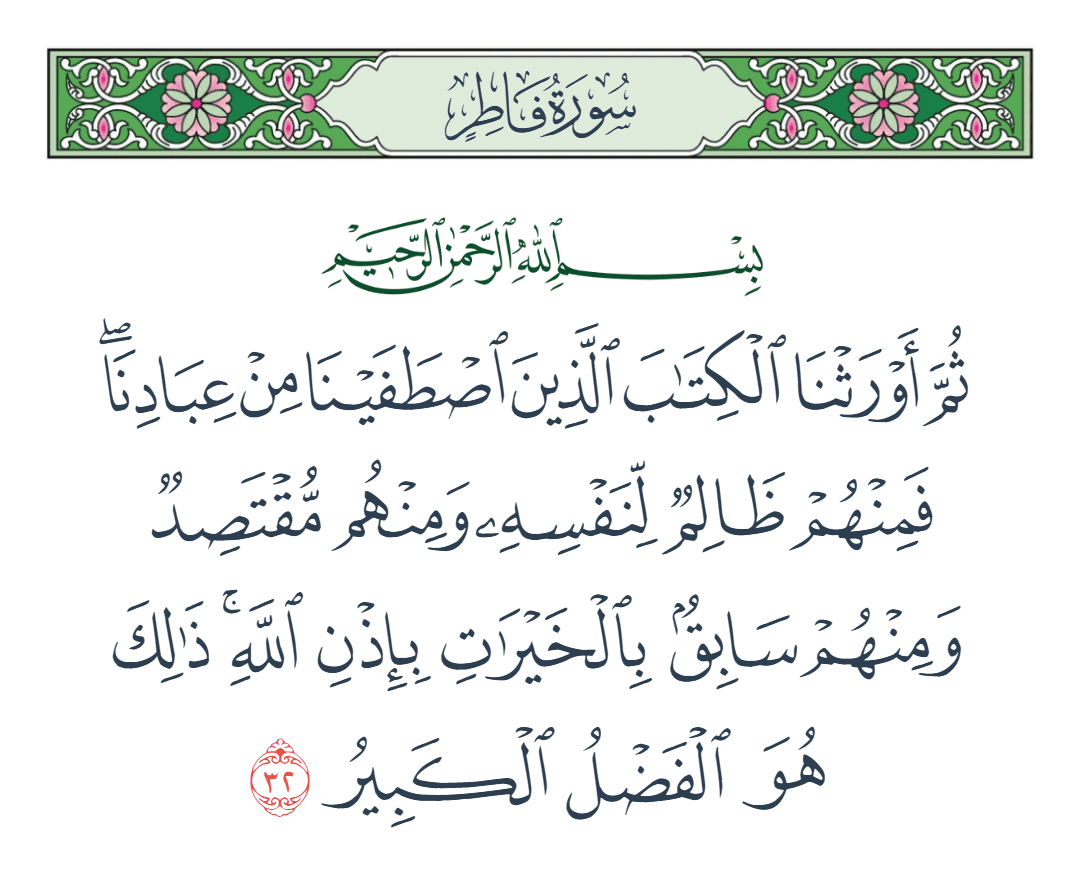 سُورَةُ فَاطِرٍ
بِسْمِ ٱللَّهِ ٱلرَّحْمَٰنِ ٱلرَّحِيمِ
ثُمَّ أَوْرَثْنَا ٱلْكِتَٰبَ ٱلَّذِينَ ٱصْطَفَيْنَا مِنْ عِبَادِنَاۖ
فَمِنْهُمْ ظَالِمٌ لِّنَفْسِهِۦ وَمِنْهُم مُّقْتَصِدٌ
وَمِنْهُمْ سَابِقٌۢ بِٱلْخَيْرَٰتِ بِإِذْنِ ٱللَّهِۚ ذَٰلِكَ
هُوَ ٱلْفَضْلُ ٱلْكَبِيرُ ٣٢